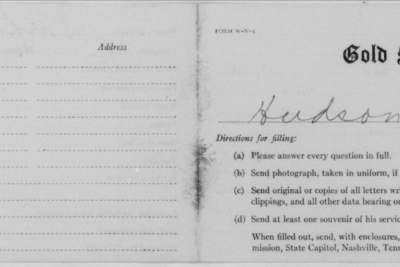 Address
FORM W-W-1
Gold
Hudson
Directions for filling:
(a) Please answer every question in full.
(b) Send photograph, taken in uniform, if
(c) Send original or copies of all letters wr
clippings, and all other data bearing o
(d) Send at least one souvenir of his servic
When filled out, send, with enclosures,
mission, State Capitol, Nashville, Tenn